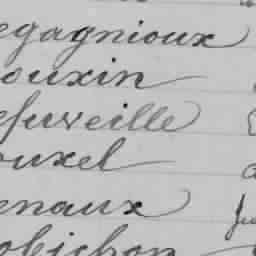 egagnioux
ouxin
efuveille
ouxel
enaux
obichon